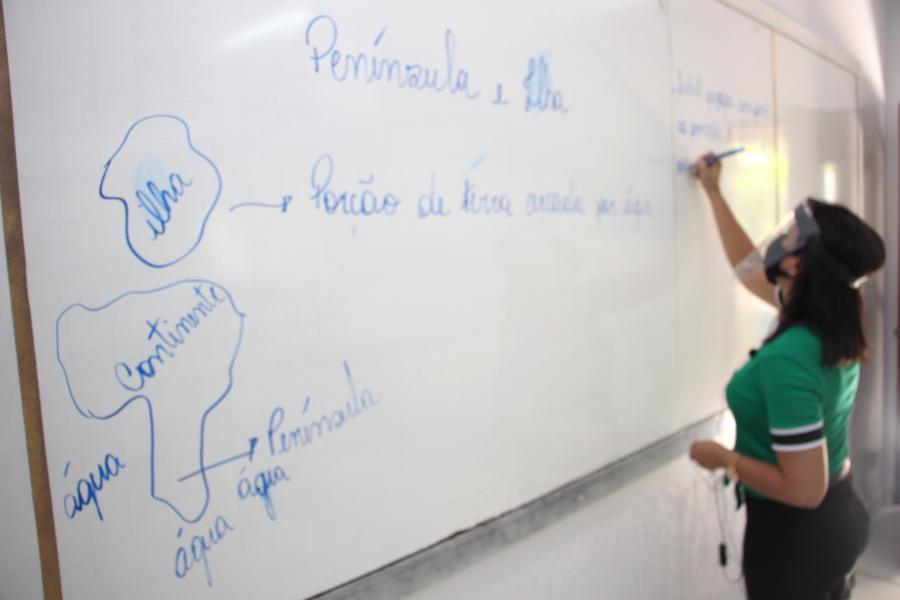 Península e Ilha
ilha
Porção de terra arcada por água
Continente
Península
água
água
água